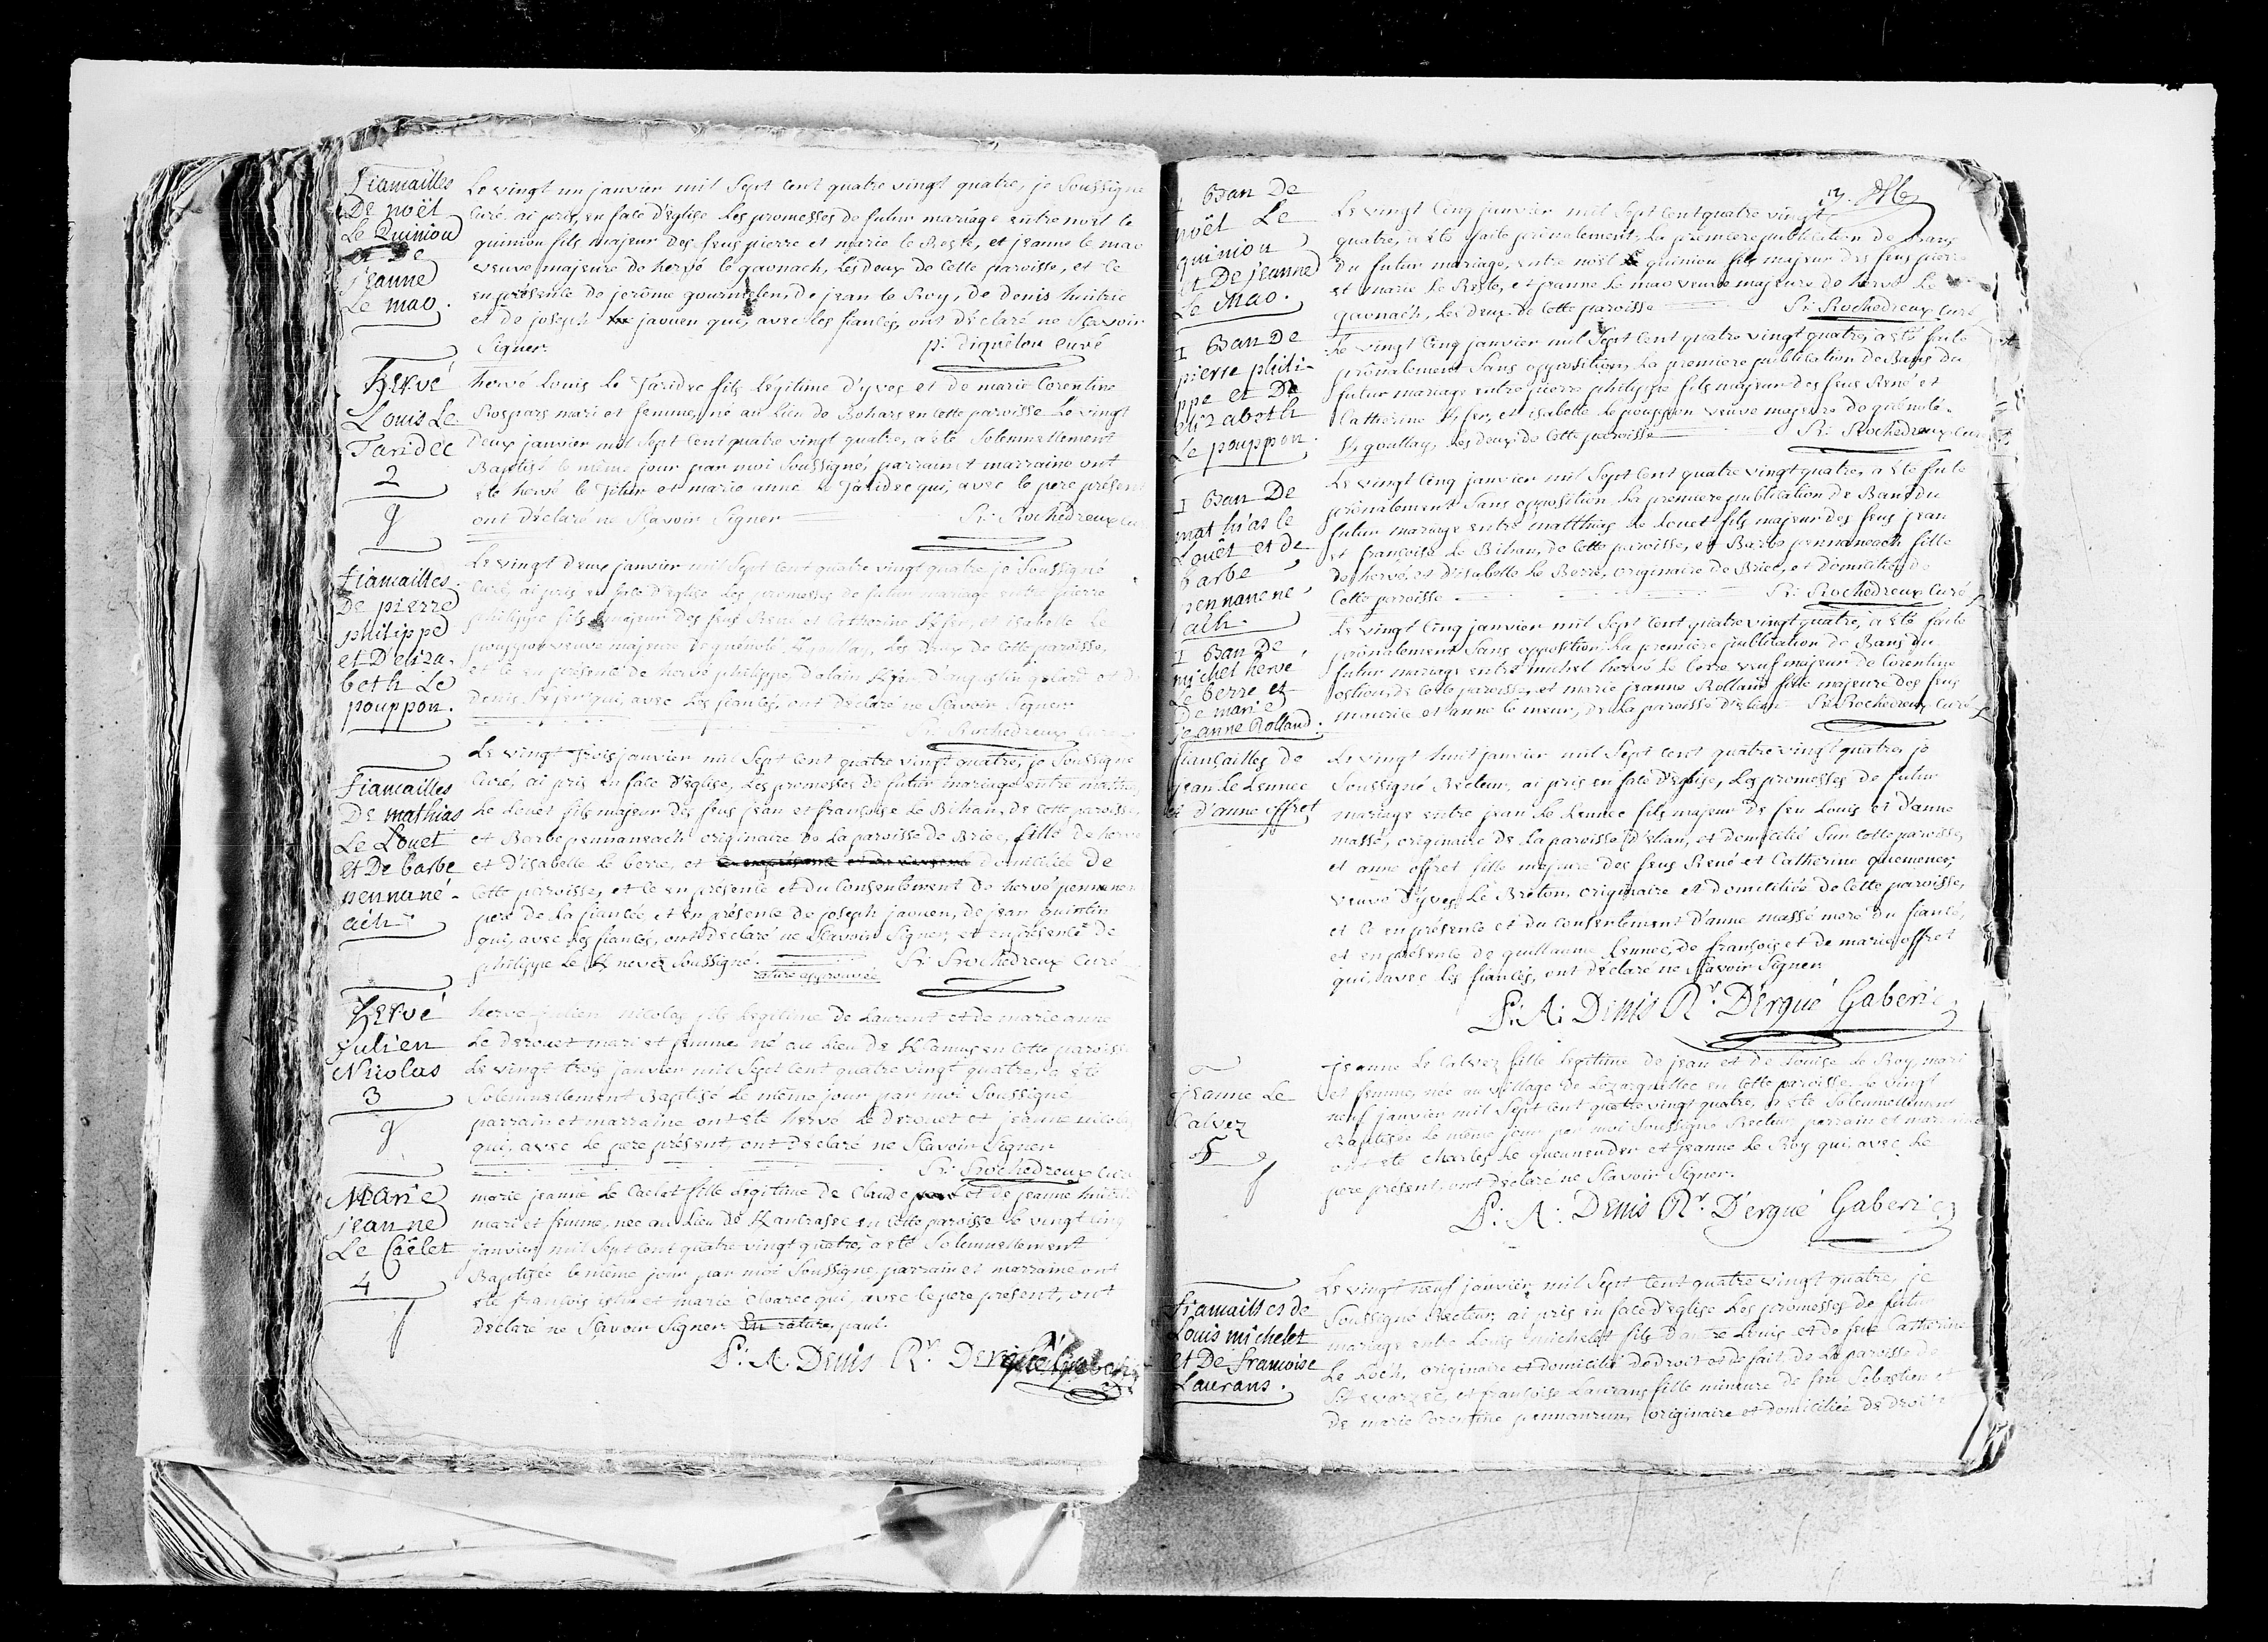 Fiancailles
De noël
Le Quiniou
et De
jeanne
Le mao.
Le vingt un janvier mil Sept Cent quatre vingt quatre, je Soussigné
Curé, ai pris en face d'Eglise Les promesses de futur mariage entre noël le
quiniou fils majeur des feus pierre et marie le Reste, et jeanne le mao
veuve majeure de hervé le gaonach, Les deux de Cette paroisse, et ce
en présence de jerôme gourmelen, de jean le Roy, de denis huitric
et de joseph jaouen qui, avec les fiancés, ont déclaré ne Sçavoir
Signer. p: diquelou curé
hervé
Louis Le
Taridec
2
g
hervé Louis Le Taridec fils Légitime d'yves et de marie Corentine
Rospars mari et femme, né au Lieu de Bohars en Cette paroisse Le vingt
Deux janvier mil Sept Cent quatre vingt quatre, a été Solemnellement
Baptisé le même jour par moi Soussigné, parrain et marraine ont
été hervé le et marie anne le Taridec qui, avec le pere présent
ont déclaré ne Sçavoir Signer Rochedreux Cu
Fiancailles
De pierre
philippe
et D'eliza-
beth Le
pouppon.
Le vingt Deux janvier mil Sept Cent quatre vingt quatre je Soussigné
Curé, ai pris en face d'Eglise Les promesses de futur mariage entre pierre
philippe fils majeur des feus René et Catherine K/fer, et isabelle Le
pouppon veuve majeure de guénolé K/goullay, Les Deux de Cette paroisse,
et ce en présence de hervé philippe, d'alain K/fer, D'augustin et de
denis qui, avec Les fiancés, ont déclaré ne Sçavoir Signer
Rochedreux Curé
Fiancailles
De mathias
Le Louet
et De barbe
pennané-
ach
Le vingt Trois janvier mil Sept Cent quatre vingt quatre, je Soussigné
Curé, ai pris en face d'Eglise, Les promesses de futur mariage entre mathias
Le Louet fils majeur des feus jean et françoise Le Bihan, de Cette paroisse,
et Barbe pennaneach originaire de La paroisse de Briec, fille de hervé
et D'isabelle Le berre, et domiciliée de
Cette paroisse, et ce en présence et du Consentement de hervé pennanen
pere de La fiancée, et en présence de joseph jaouen, de jean quintin
qui, avec Les fiancés, ont déclaré ne Sçavoir Signer, et en présence de
philippe Le K/nevez Soussigné. Rochedreux Curé
rature approuvée
hervé
julien
Nicolas
3
g
hervé julien nicolas fils Legitime de Laurent et de marie anne
Le Derouet mari et femme, né au Lieu de en Cette paroisse
Le vingt trois janvier mil Sept Cent quatre vingt quatre, a été
Solemnellement Baptisé Le même jour par moi Soussigné
parrain et marraine ont été hervé Le Derouet et jeanne nicolas
qui, avec Le pere présent, ont Déclaré ne Sçavoir Signer
Rochedreux Curé
Marie
jeanne
Le Caëlet
4
f
marie jeanne Le Caelet fille Legitime de Claude et de jeanne
mari et femme, née au Lieu de en Cette paroisse Le vingt Cinq
janvier mil Sept Cent quatre vingt quatre, a été Solemnellement
Baptisée le même jour par moi Soussigné, parrain et marraine ont
été françois et marie qui, avec le pere présent, ont
Déclaré ne Sçavoir Signer. En rature, paul.
P: A: Denis Rr. Dergué Gaberic
1 Ban De
noël Le
quiniou
et De jeanne
Le Mao.
3.
Le vingt Cinq janvier mil Sept Cent quatre vingt
quatre, a été faite prônalement, La premiere publication de Bans
Du futur mariage, entre noël Le quiniou fils majeur des feus pierre
et marie Le Reste, et jeanne Le mao veuve majeure de hervé Le
gaonach, Les deux de Cette paroisse Rochedreux Curé
1 Ban De
pierre phili-
ppe et De
elizabeth
Le pouppon.
Le vingt Cinq janvier mil Sept Cent quatre vingt quatre, a été faite
prônalement Sans opposition, La premiere publication de Bans du
futur mariage entre pierre philippe fils majeur des feus René et
Catherine K/fer, et isabelle Le pouppon veuve majeure de guénolé
K/goullay, Les deux de Cette paroisse Rochedreux Curé
1 Ban De
mathias le
Louët et de
barbe
pennanené-
ach.
Le vingt Cinq janvier mil Sept Cent quatre vingt quatre, a été faite
prônalement Sans opposition La premiere publication de Bans du
futur mariage entre matthias Le Louet fils majeur des feus jean
et françoise Le Bihan, de Cette paroisse, et Barbe pennaneach fille
de hervé, et d'isabelle Le Berre, originaire de Briec, et domiciliée de
Cette paroisse Rochedreux Curé
1 Ban de
michel hervé
Le berre et
De marie
jeanne Rolland.
Le vingt Cinq janvier mil Sept Cent quatre vingt quatre, a été faite
prônalement Sans opposition La premiere publication de Bans du
futur mariage entre michel hervé Le berre veuf majeur de Corentine
de Cette paroisse, et marie jeanne Rolland fille majeure des feus
maurice et anne le meur, de La paroisse d'Elian Rochedreux Curé
fiançailles de
jean Le Lennec
et d'anne offret
Le vingt huit janvier mil Sept Cent quatre vingt quatre, je
Soussigné Recteur, ai pris en face d'Eglise, Les promesses de futur
mariage entre jean Le Lennec fils majeur de feu Louis et d'anne
massé, originaire de La paroisse d'Elian, et domicilié Sur Cette paroisse,
et anne offret fille majeure des feus René et Catherine quemener,
veuve d'yves Le Breton, originaire et domiciliée de Cette paroisse,
et ce en présence et du Consentement d'anne massé mere du fiancé,
et en présence de guillaume Lennec, de françois et de marie offret
qui, avec Les fiancés, ont déclaré ne Sçavoir Signer.
P: A: Denis Rr. D'ergué Gaberic
jeanne Le
Calvez
5
f
jeanne Le Calvez fille Legitime de jean et de Louise Le Roy, mari
et femme, née au village de Lezarguellec en Cette paroisse Le vingt
neuf janvier mil Sept Cent quatre vingt quatre, a été Solemnellement
Baptisée Le même jour par moi Soussigné Recteur, parrain et marraine
ont été Charles Le et jeanne Le Roy qui, avec Le
pere présent, ont déclaré ne Sçavoir Signer.
P: A: Denis Rr. D'ergué Gaberic
fiancailles de
Louis michelet
et De françoise
Laurans.
Le vingt neuf janvier mil Sept Cent quatre vingt quatre, je
Soussigné Recteur, ai pris en face d'Eglise Les promesses de futur
mariage entre Louis michelet fils d'autre Louis et de feue Catherine
Le originaire et domicilié de droit et de fait de La paroisse de
et françoise Laurans fille mineure de feu Sebastien et
De marie Corentine pennanrun, originaire et domiciliée de droit